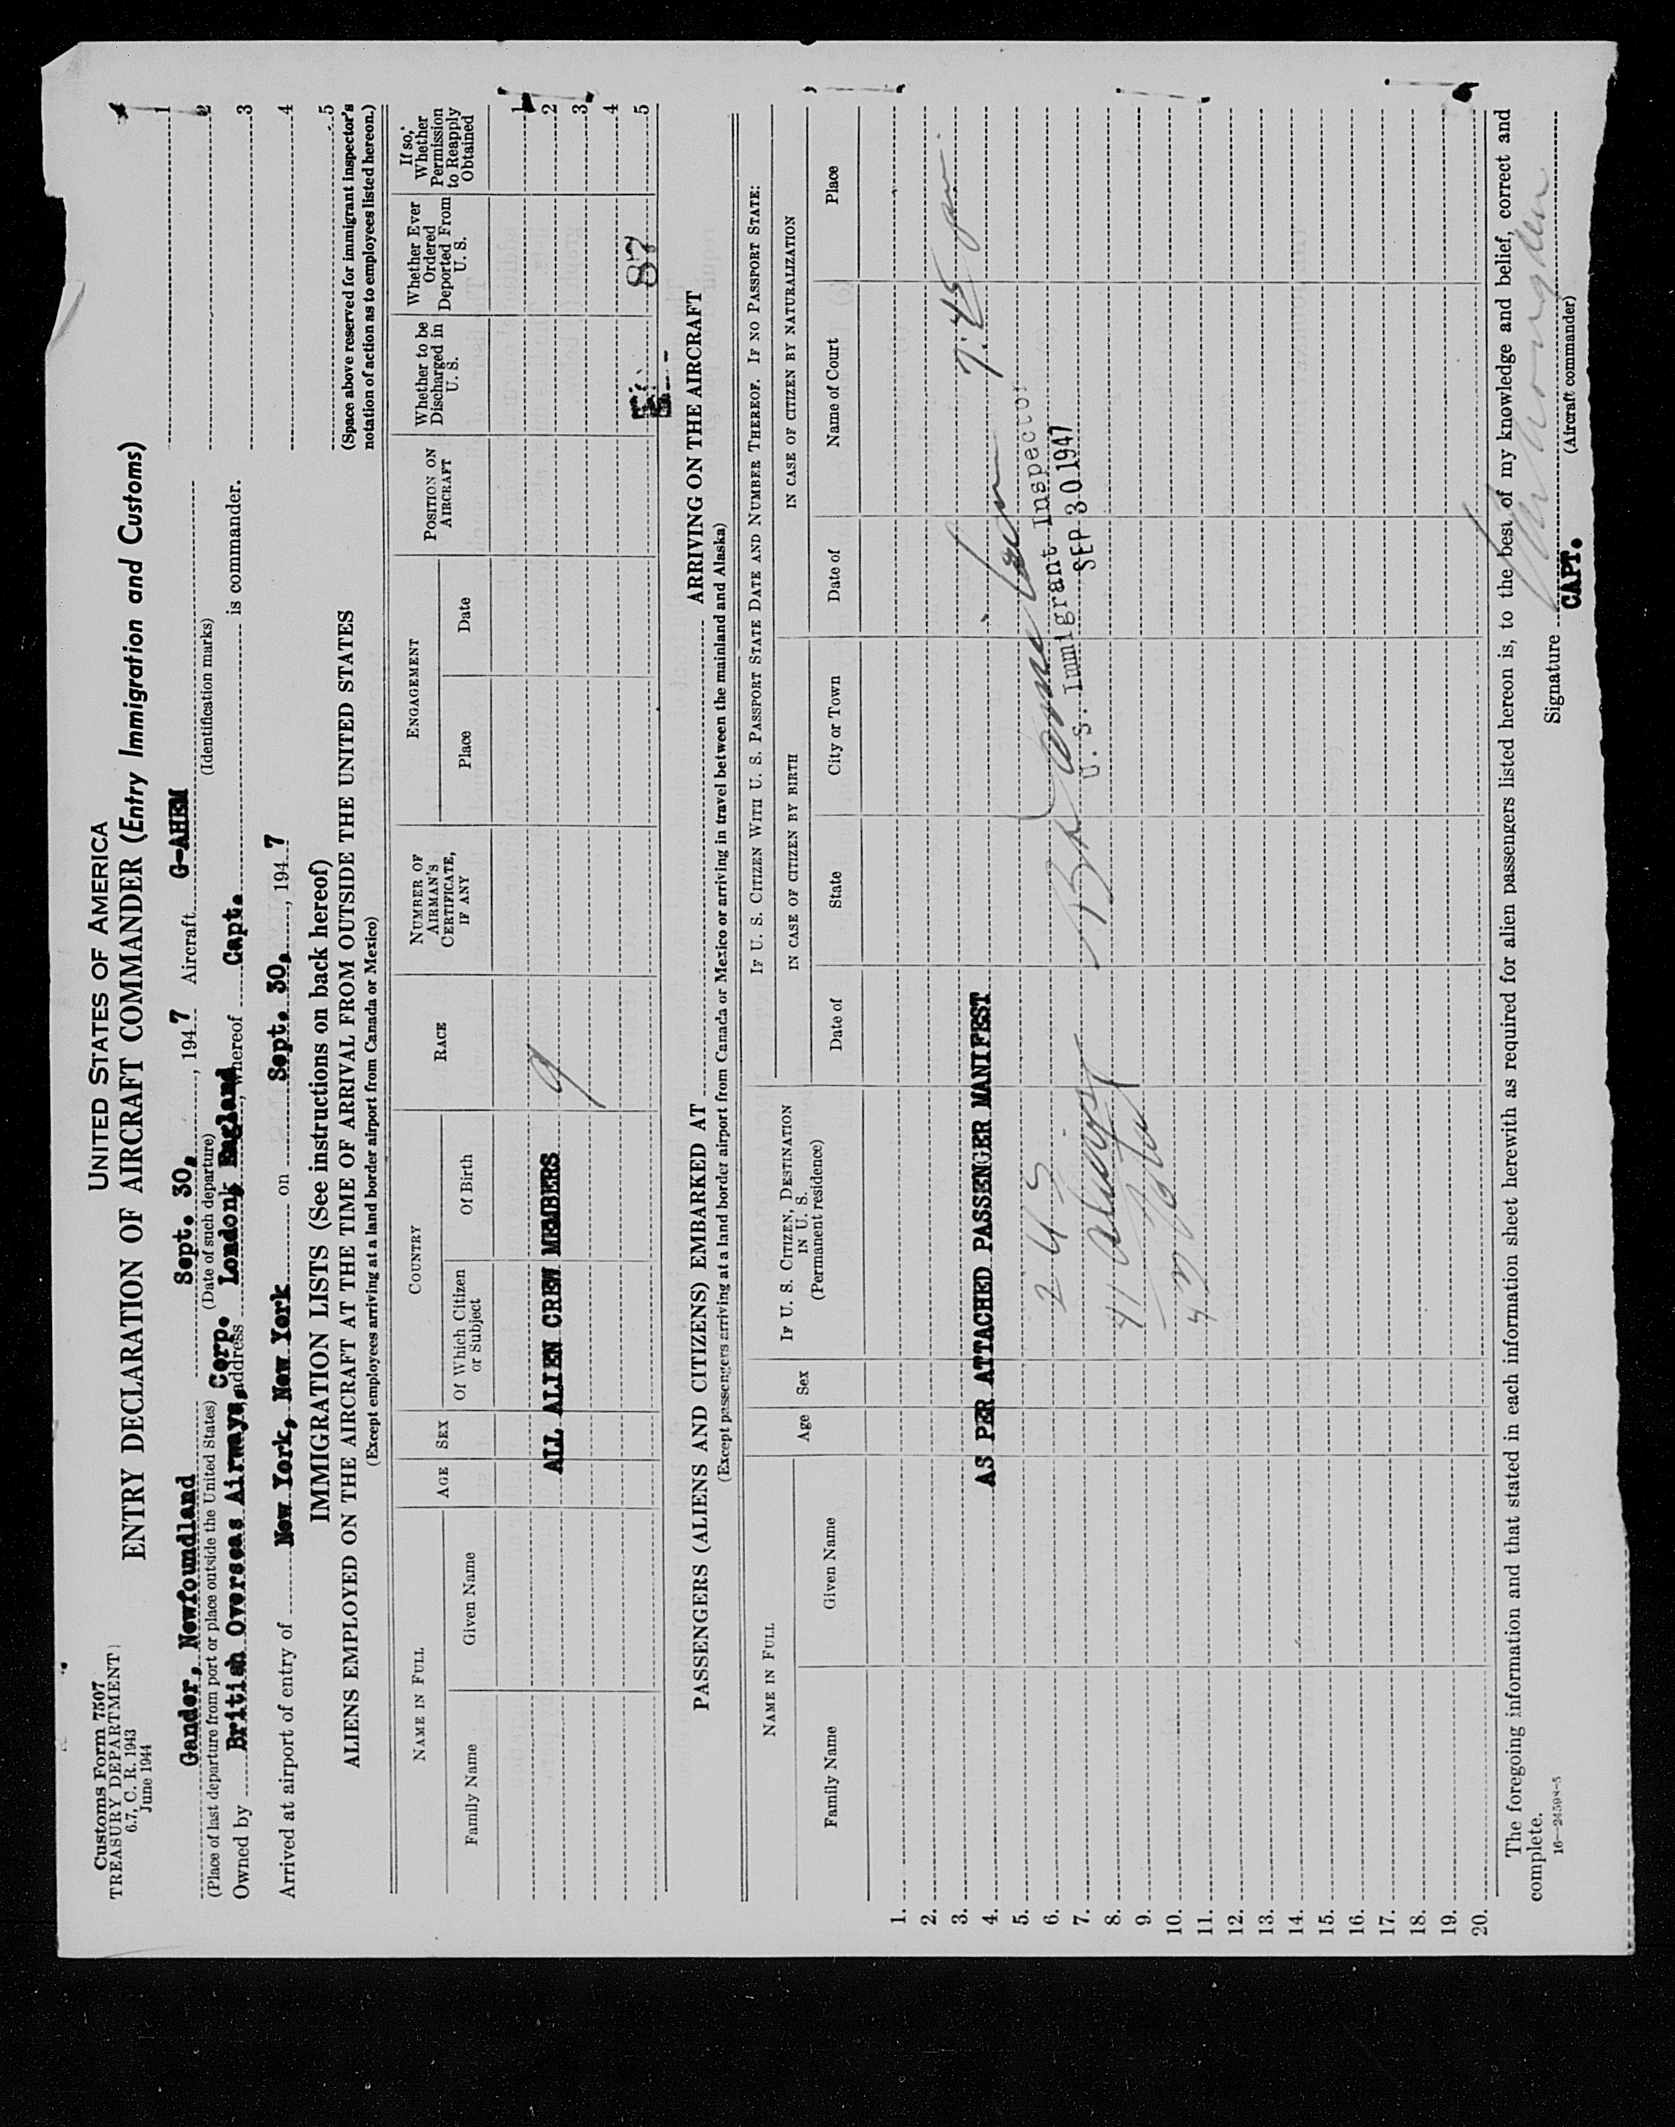 Customs Form 7507
TREASURY DEPARTMENT
6.7, C. R. 1943
June 1944
UNITED STATES OF AMERICA
ENTRY DECLARATION OF AIRCRAFT COMMANDER (Entry Immigration and Customs)
Gander, Newfoundland Sept. 30, , 1947 Aircraft G-AHEM
(Place of last departure from port or place outside the United States) (Date of such departure) (Identification marks)
Owned by British Overseas Airways, Corp. address London, England, whereof Capt. is commander.
Arrived at airport of entry of New York, New York on Sept. 30, , 1947
1
2
3
4
5
(Space above reserved for immigrant inspector's
notation of action as to employees listed hereon.)
IMMIGRATION LISTS (See instructions on back hereof)
ALIENS EMPLOYED ON THE AIRCRAFT AT THE TIME OF ARRIVAL FROM OUTSIDE THE UNITED STATES
(Except employees arriving at a land border airport from Canada or Mexico)
NAME IN FULL
Family Name Given Name
AGE
SEX
COUNTRY
Of Which Citizen or Subject Of Birth
RACE
NUMBER OF AIRMAN'S CERTIFICATE, IF ANY
ENGAGEMENT
Place Date
POSITION ON AIRCRAFT
Whether to be Discharged in U. S.
Whether Ever Ordered Deported From U. S.
If so, Whether Permission to Reapply Obtained
1
ALL ALIEN CREW MEMBERS 2
3
4
87 5
PASSENGERS (ALIENS AND CITIZENS) EMBARKED AT ARRIVING ON THE AIRCRAFT
(Except passengers arriving at a land border airport from Canada or Mexico or arriving in travel between the mainland and Alaska)
NAME IN FULL
Family Name Given Name
Age
Sex
IF U. S. CITIZEN, DESTINATION IN U. S.
(Permanent residence)
IF U. S. CITIZEN WITH U. S. PASSPORT STATE DATE AND NUMBER THEREOF. IF NO PASSPORT STATE:
IN CASE OF CITIZEN BY BIRTH
Date of State City or Town
IN CASE OF CITIZEN BY NATURALIZATION
Date of Name of Court Place
1.
2.
3.
4. AS PER ATTACHED PASSENGER MANIFEST 7:45 pm
5.
6. 2 U S
7. U. S. Immigrant Inspector
SEP 30 1947
8. 41 aliens
9.
10. 43 Total
11.
12.
13.
14.
15.
16.
17.
18.
19.
20.
The foregoing information and that stated in each information sheet herewith as required for alien passengers listed hereon is, to the best of my knowledge and belief, correct and
complete.
16—24598-3
Signature
CAPT. (Aircraft commander)